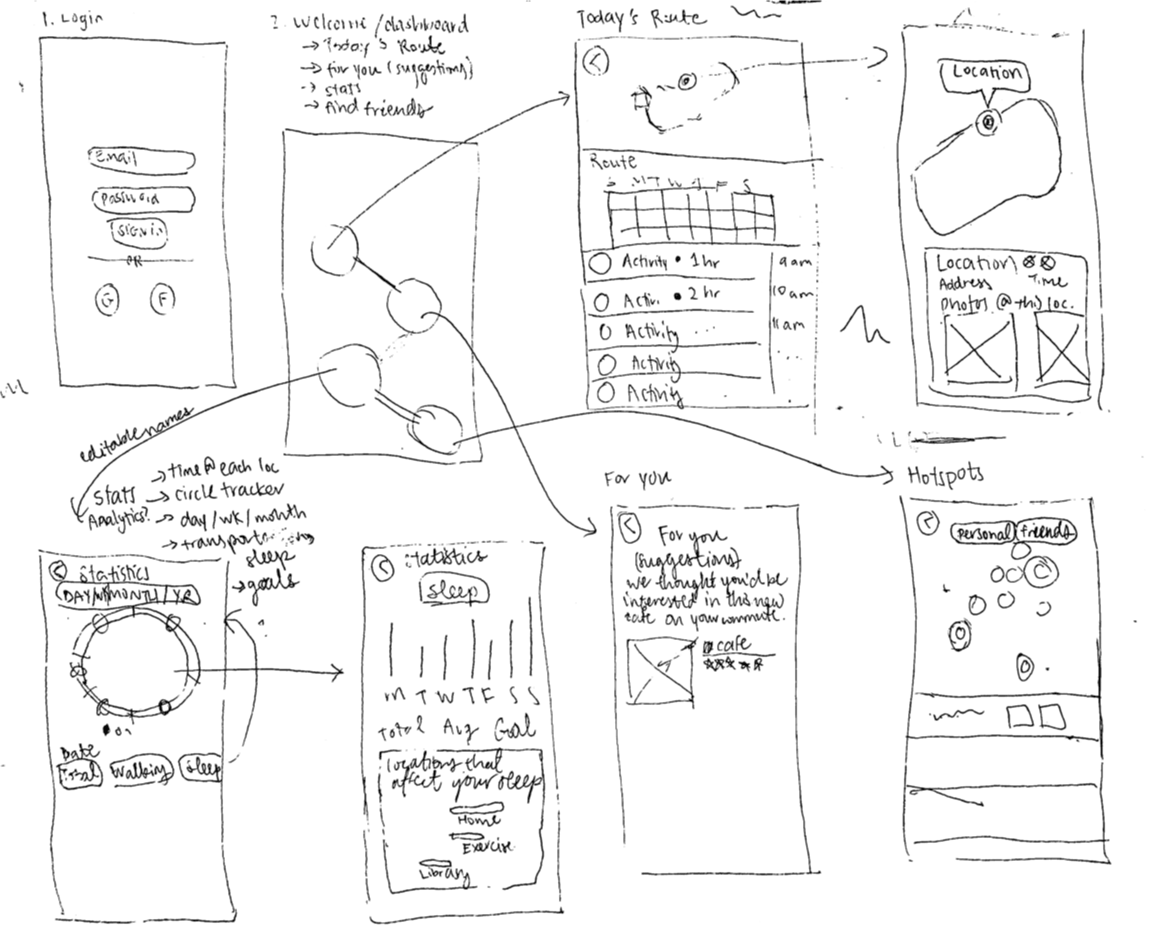 1. Login
Email
Password
Sign in
OR
G
F
2. Welcome /dashboard
→ Today's Route
→ for you (suggestions)
→ stats
→ find friends
Today's Route
Route
S M T W T F S
Activity • 1 hr
9 am
Activ. • 2 hr
10 am
Activity ...
11 am
Activity
...
Activity
Location
Location
Address
Time
photos @ this loc.
editable names
Stats
Analytics?
→ time @ each loc
→ circle tracker
→ day/wk/month
→ transport
sleep
→ goals
Statistics
DAY/W/MONTH/YR
Date
Total
Walking
Sleep
Statistics
Sleep
M T W T F S S
Total Avg Goal
locations that
affect your sleep
Home
Exercise
Library
For you
For you
(suggestions)
we thought you'd be
interested in this new
cafe on your commute.
cafe
Hotspots
personal
friends